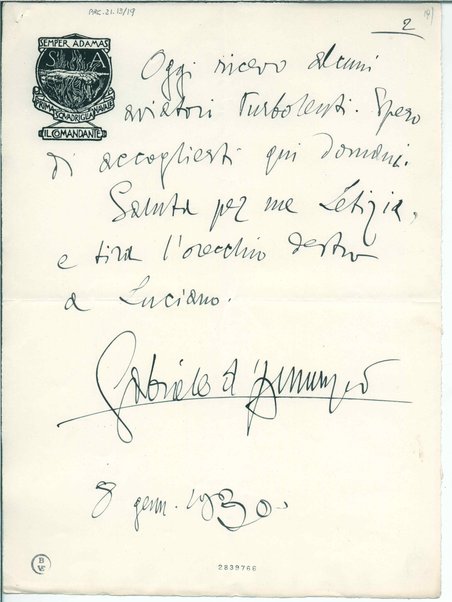 PAC. 21. 13/19
2
SEMPER ADAMAS
S A
PRIMA SQUADRIGLIA NAVALE
IL COMANDANTE
Oggi ricevo alcuni
aviatori turbolenti. Spero
di accoglierti qui domani.
Saluta per me Letizia,
e tira l'orecchio destro
a Luciano.
Gabriele d'Annunzio
8 genn. 1930.
2839766